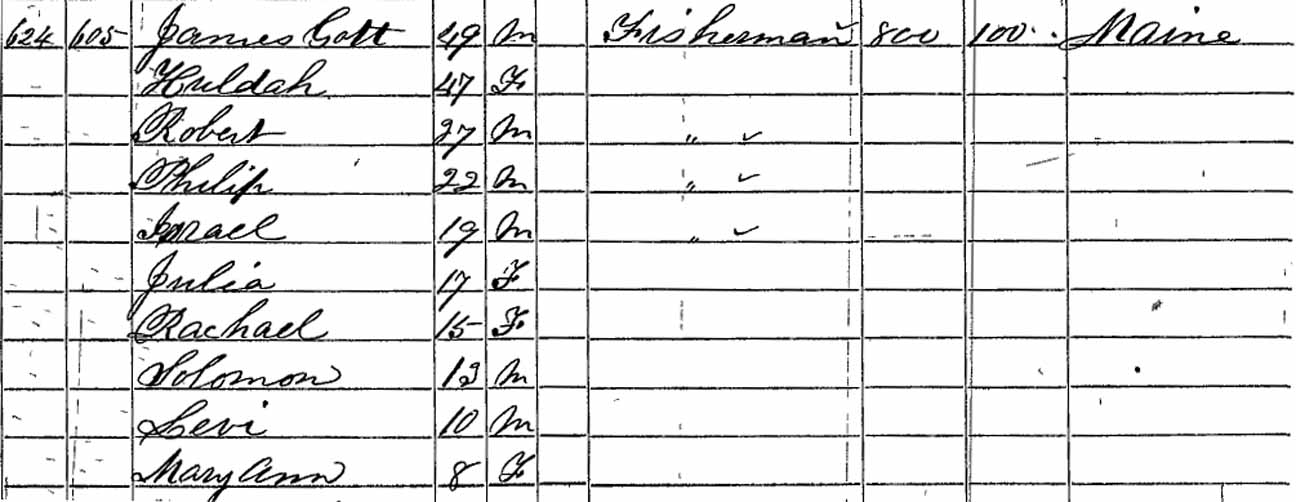 624 605 James Gott 49 M Fisherman 800 100 Maine
Huldah 47 F
Robert 27 M " ✓
Philip 22 M " ✓
Israel 19 M " ✓
Julia 17 F
Rachael 15 F
Solomon 13 M
Levi 10 M
Mary Ann 8 F